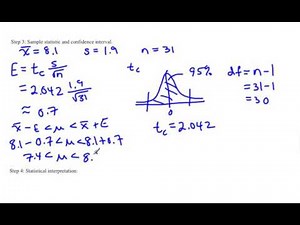 Step 3: Sample statistic and confidence interval.
x̄ = 8.1 s = 1.9 n = 31
E = t_c s/√n
= 2.042 1.9/√31
≈ 0.7
x̄ - E < μ < x̄ + E
8.1 - 0.7 < μ < 8.1 + 0.7
7.4 < μ < 8.
t_c
95%
0
t_c = 2.042
df = n - 1
= 31 - 1
= 30
Step 4: Statistical interpretation: